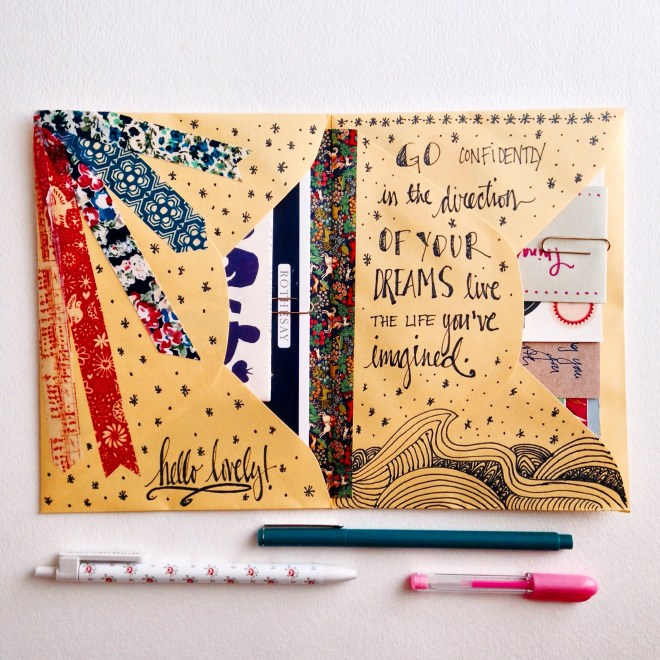 hello lovely!
ROTHESAY
GO CONFIDENTLY
in the direction
OF YOUR
DREAMS live
THE LIFE you've
imagined.
by you